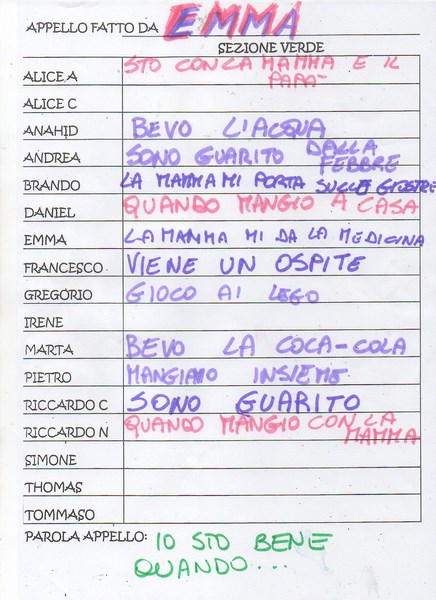 APPELLO FATTO DA EMMA
SEZIONE VERDE
ALICE A STO CON LA MAMMA E IL
PAPA-
ALICE C
ANAHID BEVO L'ACQUA
ANDREA SONO GUARITO DALLA
FEBBRE
BRANDO LA MAMMA MI PORTA SULLE GIOSTRE
DANIEL QUANDO MANGIO A CASA
EMMA LA MAMMA MI DA LA MEDICINA
FRANCESCO VIENE UN OSPITE
GREGORIO GIOCO AI LEGO
IRENE
MARTA BEVO LA COCA-COLA
PIETRO MANGIAMO INSIEME
RICCARDO C SONO GUARITO
RICCARDO N QUANDO MANGIO CON LA
MAMMA
SIMONE
THOMAS
TOMMASO
PAROLA APPELLO: IO STO BENE
QUANDO...